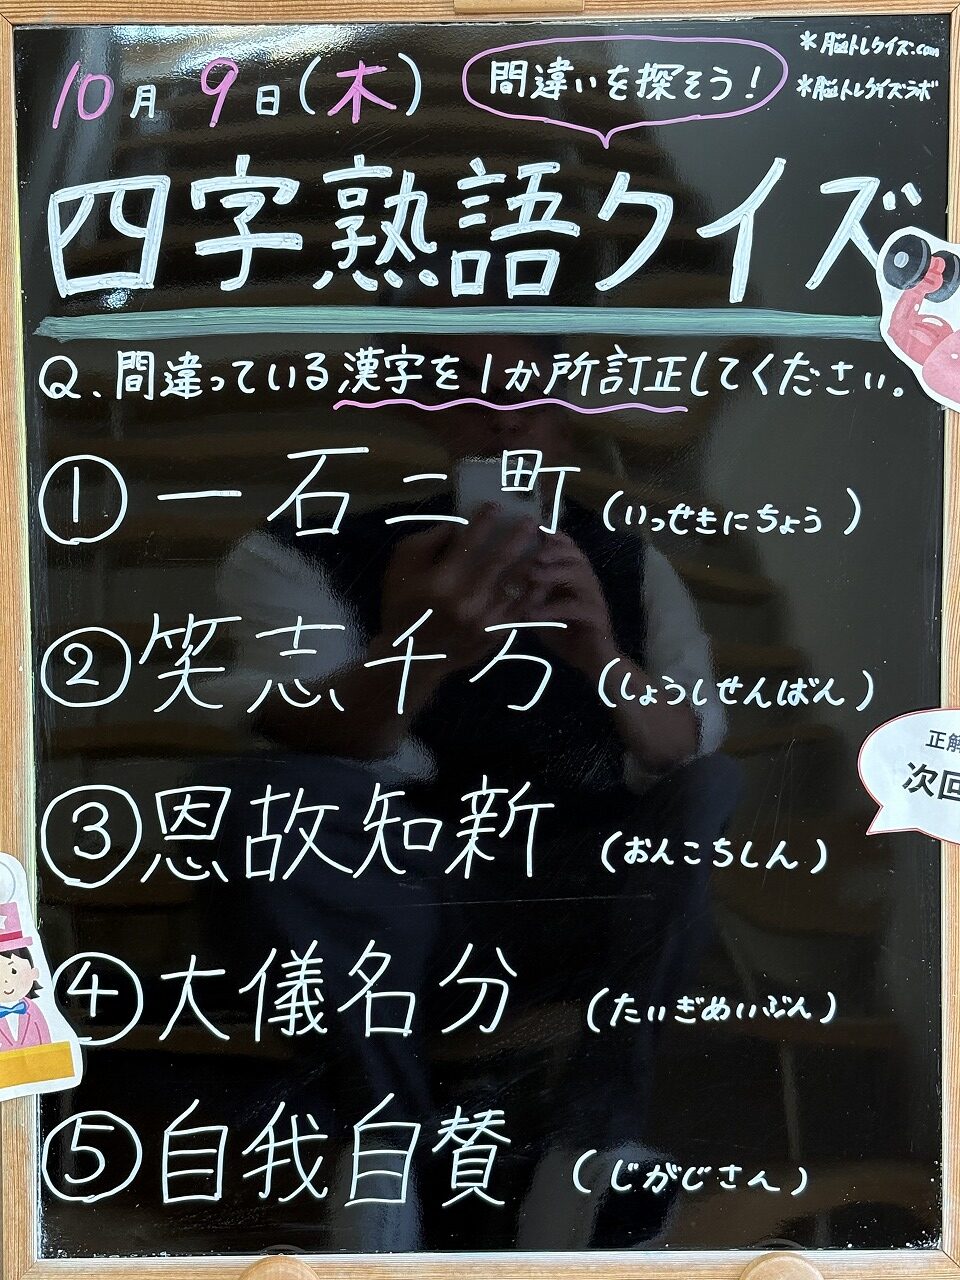 10月9日(木)
間違いを探そう!
*脳トレクイズ.com
*脳トレクイズラボ
四字熟語クイズ
Q、間違っている漢字を1か所訂正してください。
① 一石二町 (いっせきにちょう)
② 笑志千万 (しょうしせんばん)
③ 恩故知新 (おんこちしん)
④ 大儀名分 (たいぎめいぶん)
⑤ 自我自賛 (じがじさん)
正解
次回